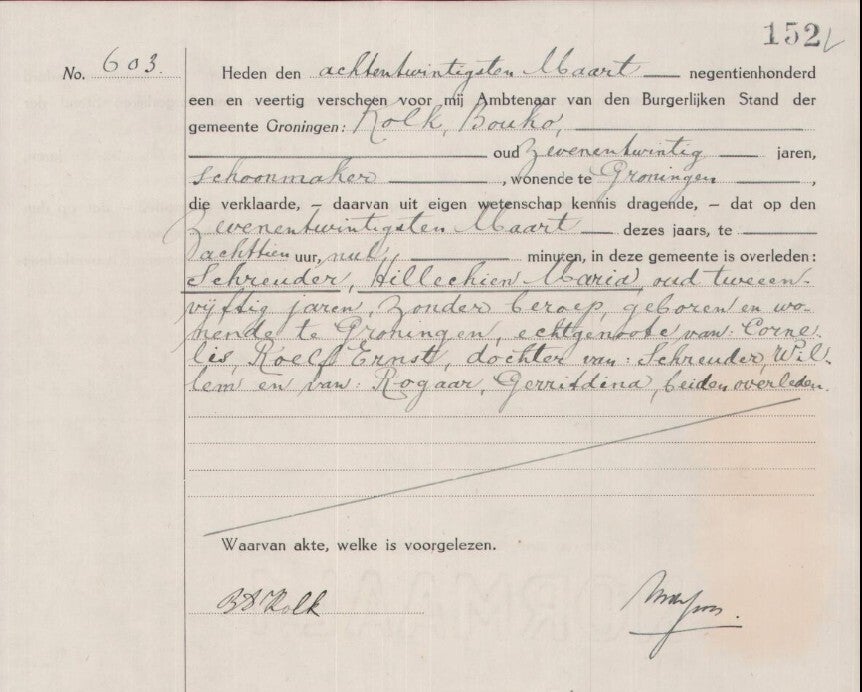 152
No. 603.
Heden den achtentwintigsten Maart negentienhonderd
een en veertig verscheen voor mij Ambtenaar van den Burgerlijken Stand der
gemeente Groningen: Kolk, Bouko,
oud zevenentwintig jaren,
schoonmaker, wonende te Groningen,
die verklaarde, – daarvan uit eigen wetenschap kennis dragende, – dat op den
zevenentwintigsten Maart dezes jaars, te
achttien uur, nul minuten, in deze gemeente is overleden:
Schreuder, Hillechien Maria, oud tweeen-
vijftig jaren, zonder beroep, geboren en wo-
nende te Groningen, echtgenoote van: Corne-
lis, Roelf Ernst, dochter van: Schreuder, Wil-
lem en van: Rogaar, Gerritdina, beiden overleden.
Waarvan akte, welke is voorgelezen.
Kolk